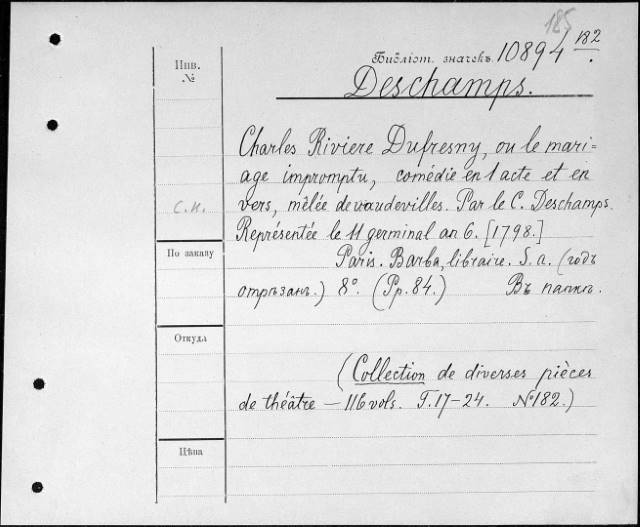 185
Библіот. значекъ. 10894 182
Deschamps.
Инв.
№
Charles Riviere Dufresny, ou le mari=
age impromptu, comédie en 1 acte et en
с.н.
vers, mêlée de vaudevilles. Par le C. Deschamps.
Représentée le 11 germinal an 6. [1798.]
По заказу
Paris. Barba, libraire. S. a. (годъ
отрѣзанъ.) 8º. (Pp. 84.) Въ папкѣ.
Откуда
(Collection de diverses pièces
de théâtre — 116 vols. T. 17–24. № 182.)
Цѣна